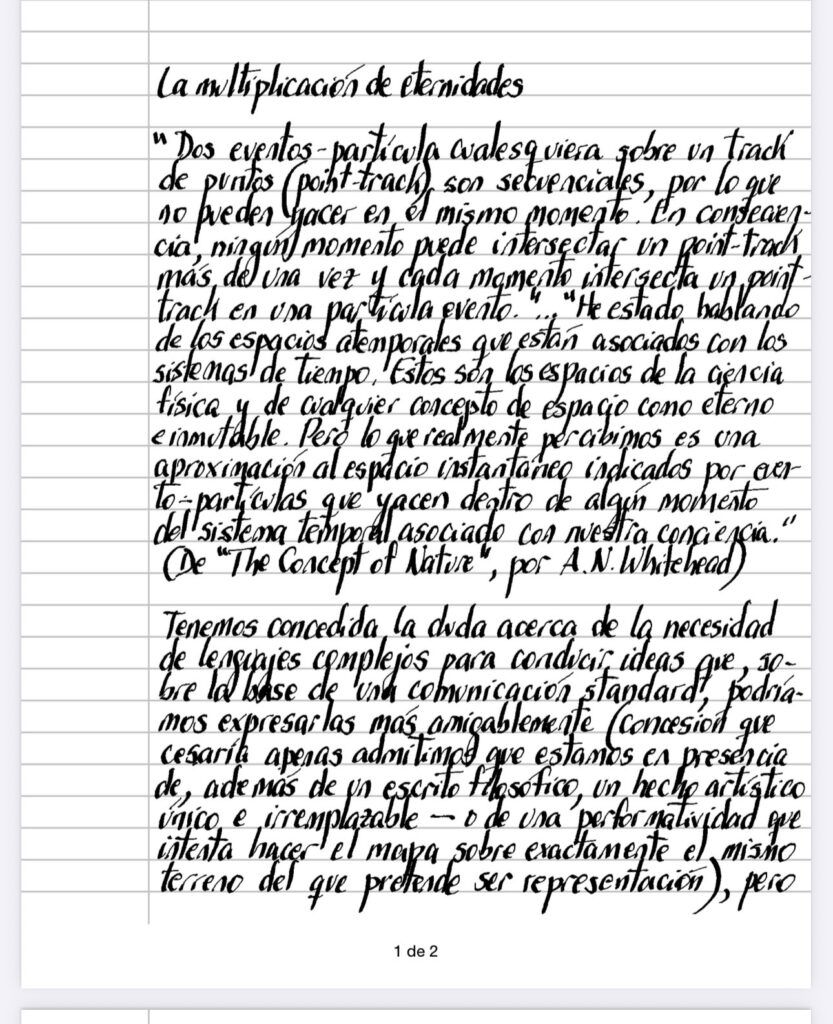 La multiplicación de eternidades
"Dos eventos-partícula cualesquiera sobre un track
de puntos (point-track) son secuenciales, por lo que
no pueden yacer en el mismo momento. En consecuen-
cia, ningún momento puede intersectar un point-track
más de una vez y cada momento intersecta un point-
track en una partícula evento."... "He estado hablando
de los espacios atemporales que están asociados con los
sistemas de tiempo. Estos son los espacios de la ciencia
física y de cualquier concepto de espacio como eterno
e inmutable. Pero lo que realmente percibimos es una
aproximación al espacio instantáneo indicados por even-
to-partículas que yacen dentro de algún momento
del sistema temporal asociado con nuestra conciencia."
(De "The Concept of Nature", por A.N. Whitehead)
Tenemos concedida la duda acerca de la necesidad
de lenguajes complejos para conducir ideas que, so-
bre la base de una comunicación standard, podría-
mos expresarlas más amigablemente (concesión que
cesaría apenas admitimos que estamos en presencia
de, además de un escrito filosófico, un hecho artístico
único e irremplazable — o de una performatividad que
intenta hacer el mapa sobre exactamente el mismo
terreno del que pretende ser representación), pero
1 de 2